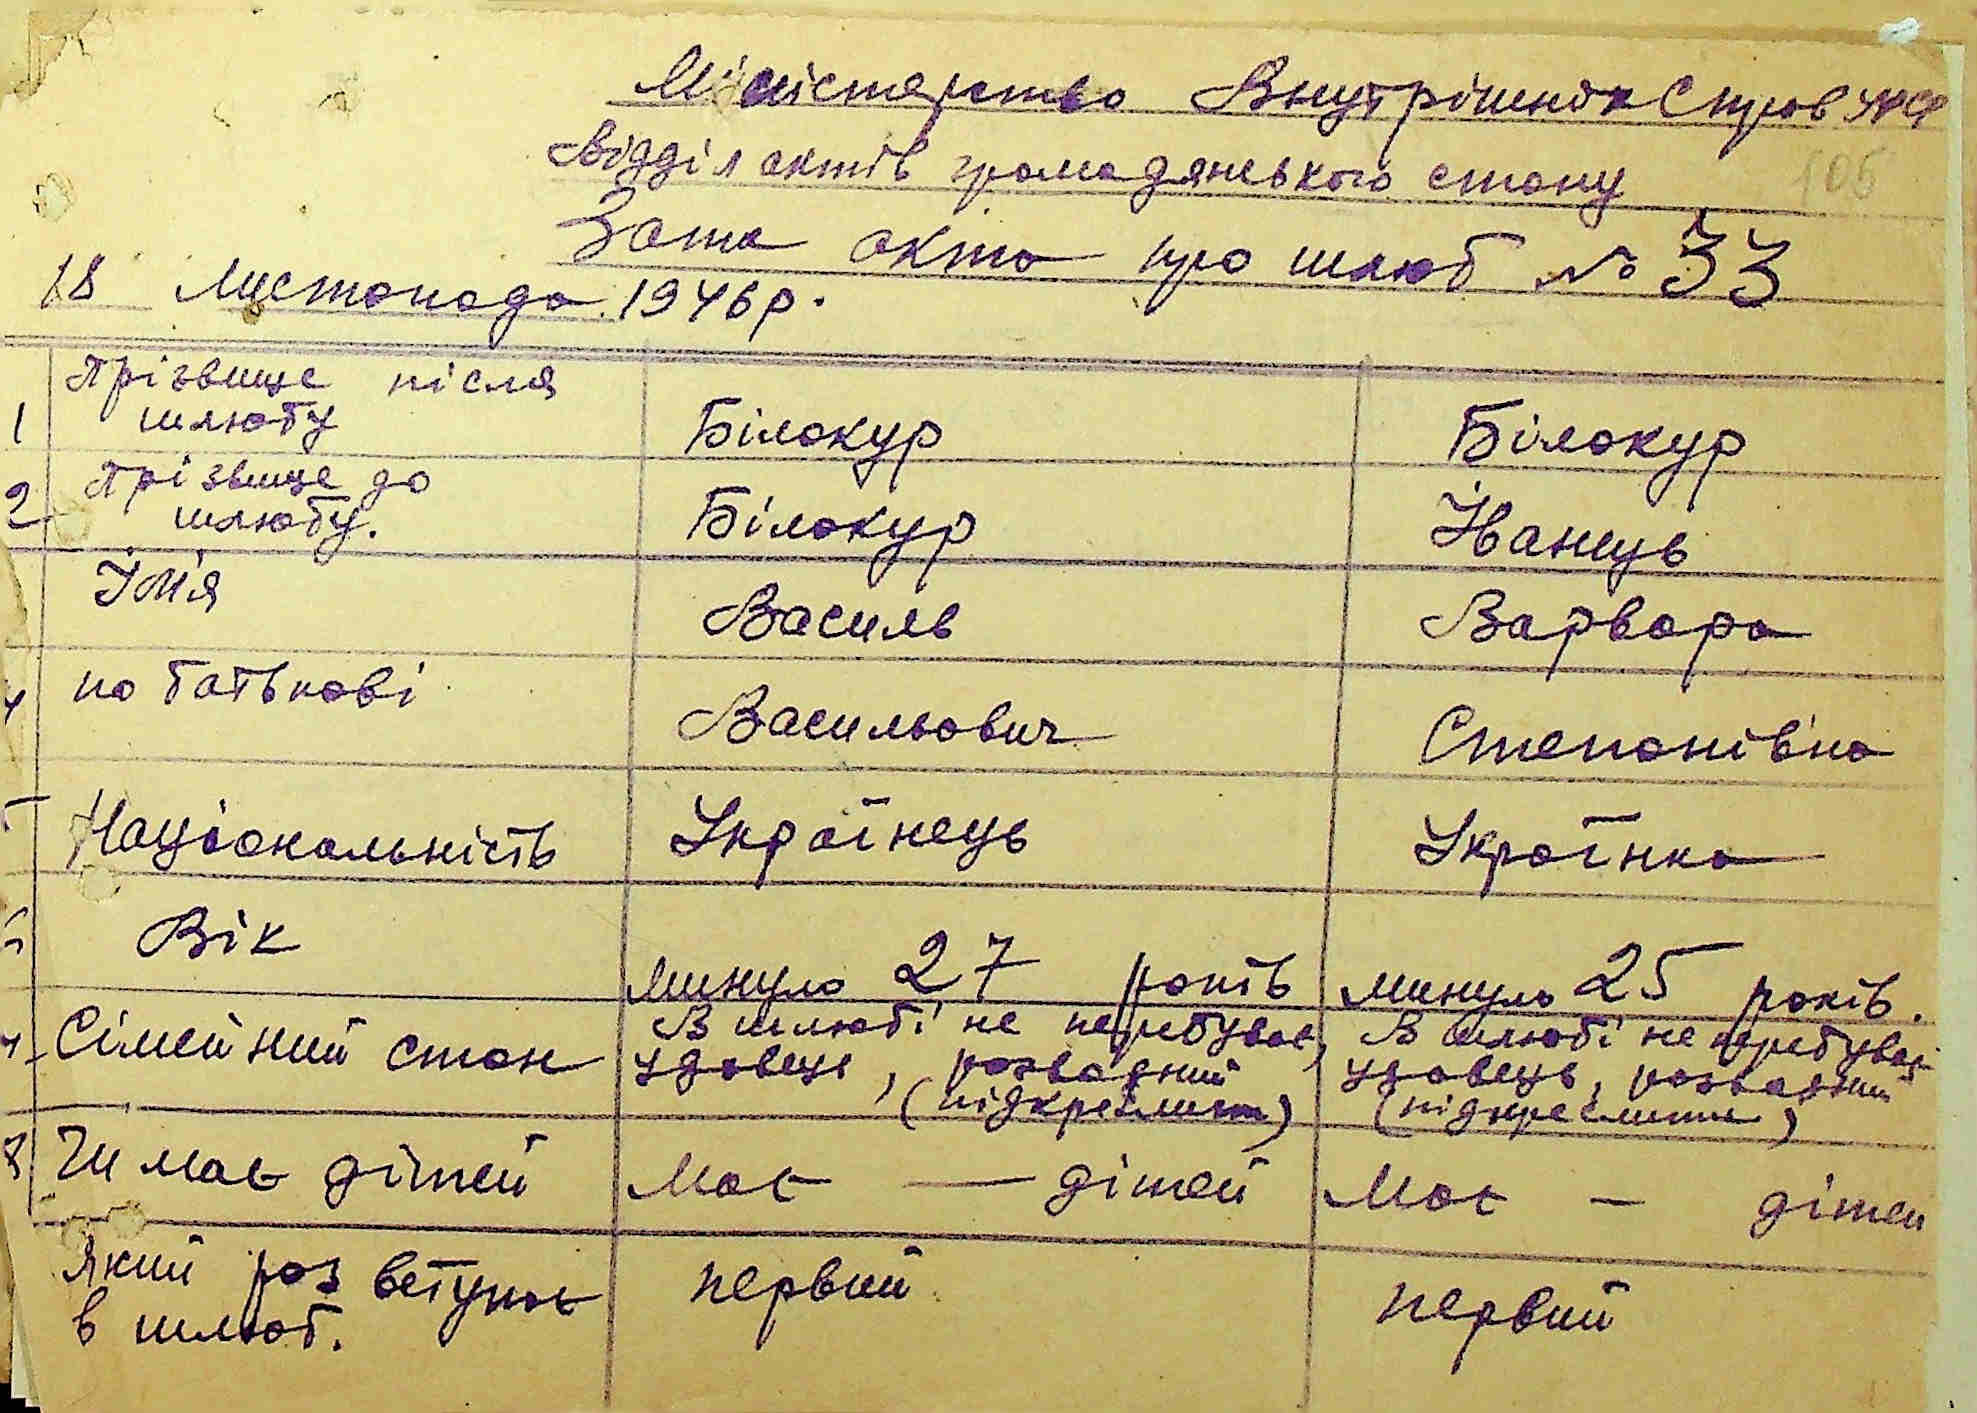 Міністерство Внутрішніх Справ УРСР
Відділ актів громадянського стану
105
Запис акта про шлюб № 33
18 Листопада 1946 р.
1 Прізвище після шлюбу Білокур Білокур
2 Прізвище до шлюбу. Білокур Іванець
Імя Василь Варвара
4 по батькові Васильович Степанівна
5 Національність Українець Українка
6 Вік минуло 27 років минуло 25 років.
7 Сімейний стан В шлюбі не перебував, удовець, розводний (підкреслити) В шлюбі не перебував, удовець, розводний (підкреслити)
8 Чи має дітей Має — дітей Має — дітей
Який раз вступає в шлюб. первий первий